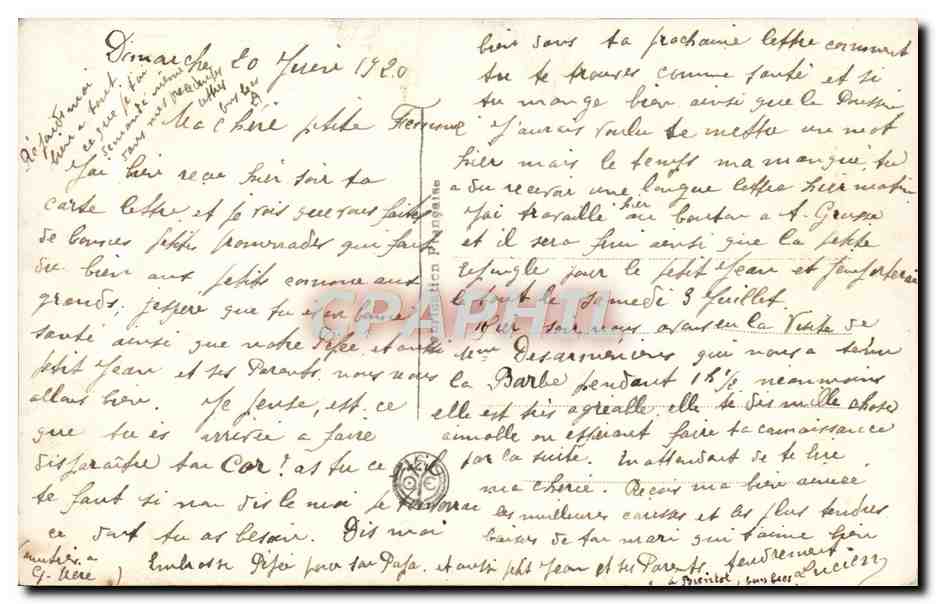 Dimanche 20 Juin 1920
Réponds moi
bien a tout
ce que je t'ai
demandé même
dans mes
autres
Ma chère petite Femme
J'ai bien reçu hier soir ta
carte lettre et je vois que vous faites
de bonnes petites promenades qui font
du bien aux petits comme aux
grands, j'espère que tu es en bonne
santé ainsi que notre Pépée et aussi
petit Jean et ses Parents, nous nous
allons bien. Je pense, est ce
que tu es arrivée a faire
disparaître ton Cor? as tu ce qu'il
te faut si non dis le moi je
ce dont tu as besoin. Dis moi
bien dans ta prochaine lettre comment
tu te trouves comme santé et si
tu mange bien ainsi que la
J'aurais voulu te mettre un mot
hier mais le temps m'a manqué, tu
a du recevoir une longue lettre hier matin
J'ai travaillé hier au bouton a
et il sera fini ainsi que la petite
épingle pour le petit Jean et
le tout le Samedi 3 Juillet.
Hier soir nous avons eu la Visite de
qui nous a tenu
la Barbe pendant 1h 1/2 néanmoins
elle est très agréable elle te dis mille choses
aimable en espérant faire ta connaissance
par la suite. En attendant de te lire
ma chérie. Reçois ma bien aimée
les meilleures caresses et les plus tendres
baisers de ton mari qui t'aime bien
tendrement
Lucien
Embrasse Pépée pour son Papa, et aussi ptit Jean et ses Parents
a Bientôt, bons bises
Fabrication Française
CPAPHIL